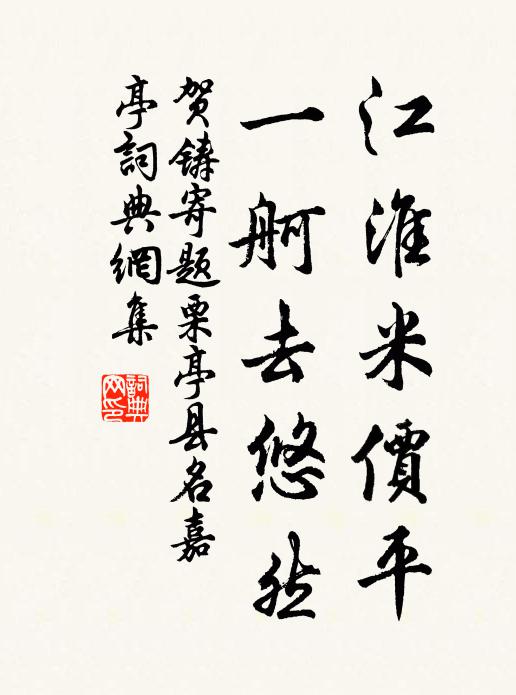 江淮米價平
一舸去悠然
贺鑄寄题栗亭县名嘉
亭詞典網集
詞典
网印